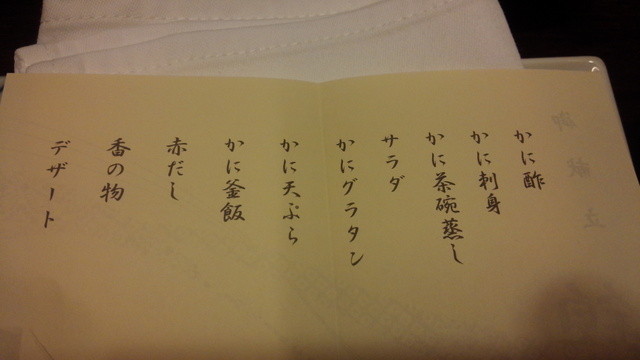 御献立
かに酢
かに刺身
かに茶碗蒸し
サラダ
かにグラタン
かに天ぷら
かに釜飯
赤だし
香の物
デザート